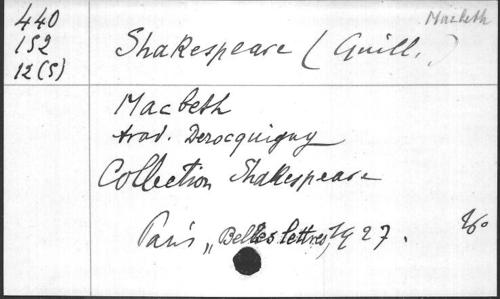 440
152
12(5)
Macbeth
Shakespeare (Guill.)
Macbeth
trad. Derocquigny
Collection Shakespeare
Paris „Belles lettres, 1927.